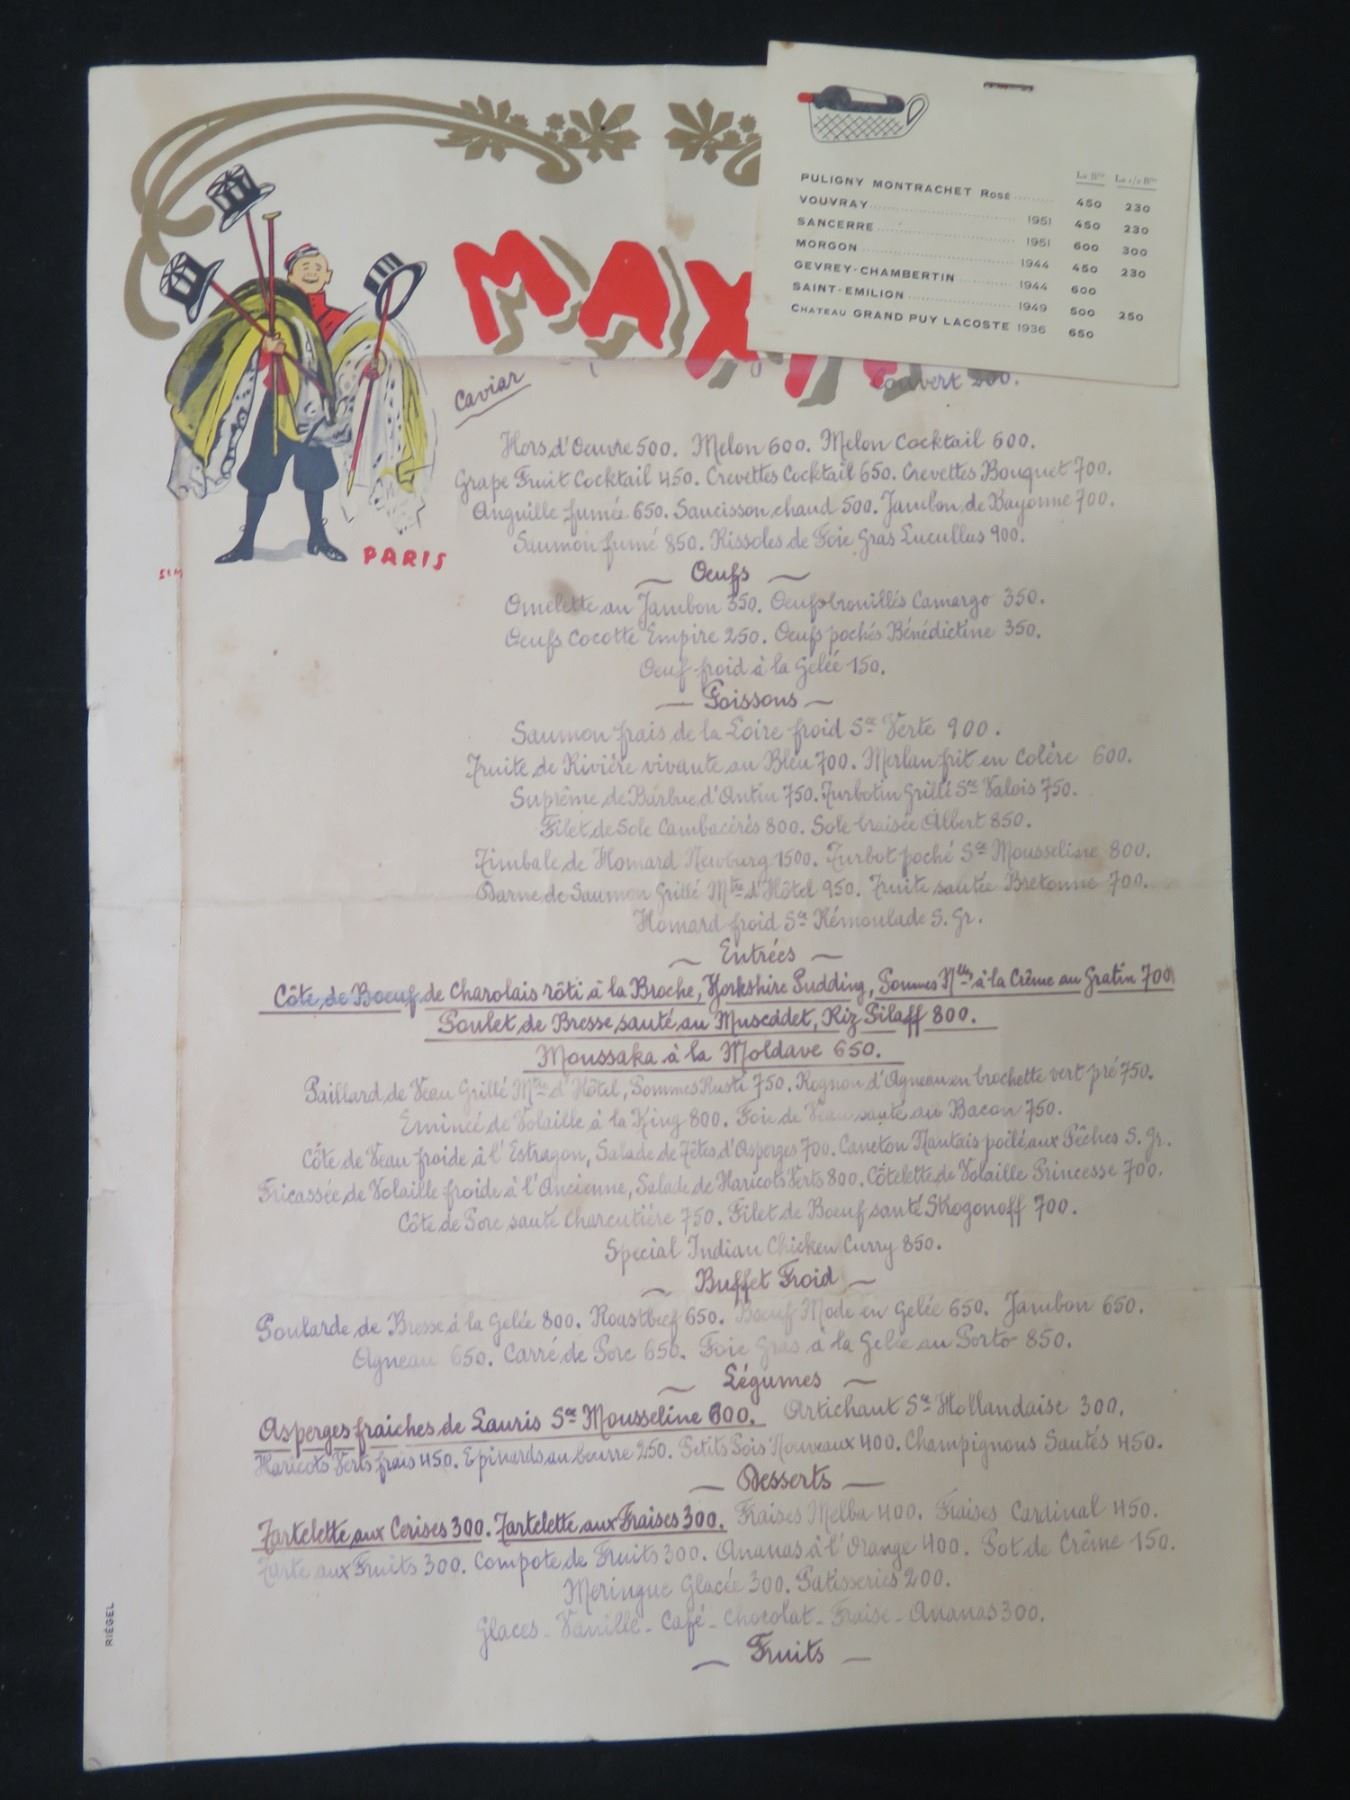 La Bᵗˡᵉ La 1/2 Bᵗˡᵉ
PULIGNY MONTRACHET Rosé ........ 450 230
VOUVRAY ........ 1951 450 230
SANCERRE ........ 1951 600 300
MORGON ........ 1944 450 230
GEVREY-CHAMBERTIN ........ 1944 600
SAINT-EMILION ........ 1949 500 250
CHATEAU GRAND PUY LACOSTE 1936 650
MAX
PARIS
SEM
Couvert 200.
Caviar
Hors d'Oeuvre 500. Melon 600. Melon Cocktail 600.
Grape Fruit Cocktail 450. Crevettes Cocktail 650. Crevettes Bouquet 700.
Anguille fumée 650. Saucisson chaud 500. Jambon de Bayonne 700.
Saumon fumé 850. Rissoles de Foie Gras Lucullus 900.
~ Oeufs ~
Omelette au Jambon 350. Oeufs brouillés Camargo 350.
Oeufs Cocotte Empire 250. Oeufs pochés Bénédictine 350.
Oeuf froid à la Gelée 150.
~ Poissons ~
Saumon frais de la Loire froid Sᶜᵉ Verte 900.
Truite de Rivière vivante au Bleu 700. Merlan frit en Colère 600.
Suprême de Barbue d'Antin 750. Turbotin Grillé Sᶜᵉ Valois 750.
Filet de Sole Cambacérès 800. Sole braisée Albert 850.
Timbale de Homard Newburg 1500. Turbot poché Sᶜᵉ Mousseline 800.
Darne de Saumon Grillé Mᵗʳᵉ d'Hôtel 950. Truite sautée Bretonne 700.
Homard froid Sᶜᵉ Rémoulade S. Gr.
~ Entrées ~
Côte de Boeuf de Charolais rôti à la Broche, Yorkshire Pudding, Pommes Nˡˡᵉˢ à la Crème au Gratin 700
Poulet de Bresse sauté au Muscddet, Riz Pilaff 800.
Moussaka à la Moldave 650.
Paillard de Veau Grillé Mᵗʳᵉ d'Hôtel, Pommes Rusti 750. Rognon d'Agneau en brochette vert pré 750.
Emincé de Volaille à la King 800. Foie de Veau sauté au Bacon 750.
Côte de Veau froide à l'Estragon, Salade de Têtes d'Asperges 700. Caneton Nantais poêlé aux Pêches S. Gr.
Fricassée de Volaille froide à l'Ancienne, Salade de Haricots Verts 800. Côtelette de Volaille Princesse 700.
Côte de Porc sauté Charcutière 750. Filet de Boeuf sauté Strogonoff 700.
Special Indian Chicken Curry 850.
~ Buffet Froid ~
Poularde de Bresse à la Gelée 800. Roastbeef 650. Boeuf Mode en Gelée 650. Jambon 650.
Agneau 650. Carré de Porc 650. Foie Gras à la Gelée au Porto 850.
~ Légumes ~
Asperges fraiches de Lauris Sᶜᵉ Mousseline 600. Artichaut Sᶜᵉ Hollandaise 300.
Haricots Verts frais 450. Epinards au beurre 250. Petits Pois Nouveaux 400. Champignons Sautés 450.
~ Desserts ~
Tartelette aux Cerises 300. Tartelette aux Fraises 300. Fraises Melba 400. Fraises Cardinal 450.
Tarte aux Fruits 300. Compote de Fruits 300. Ananas à l'Orange 400. Pot de Crème 150.
Meringue Glacée 300. Patisseries 200.
Glaces - Vanille - Café - Chocolat - Fraise - Ananas 300.
~ Fruits ~
RIÉGEL